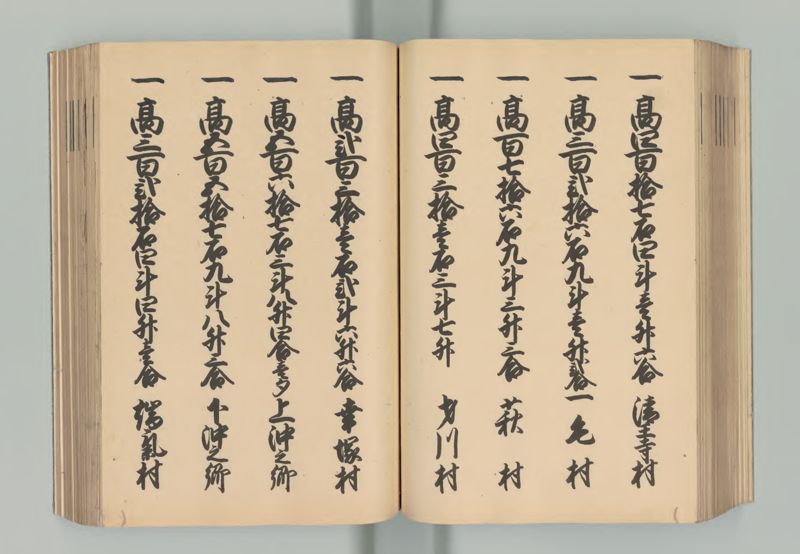 一 高四百拾七石四斗壱升六合 清王寺村
一 高三百弐拾六石九斗壱升弐合 一毛村
一 高百七拾六石九斗三升三合 萩村
一 高四百三拾壱石三斗七升 才川村
一 高弐百三拾壱石弐斗六升六合 幸塚村
一 高五百六拾七石三斗八升四合壱夕 上沖之郷
一 高五百五拾七石九斗八升三合 下沖之郷
一 高三百弐拾石四斗四升壱合 端氣村